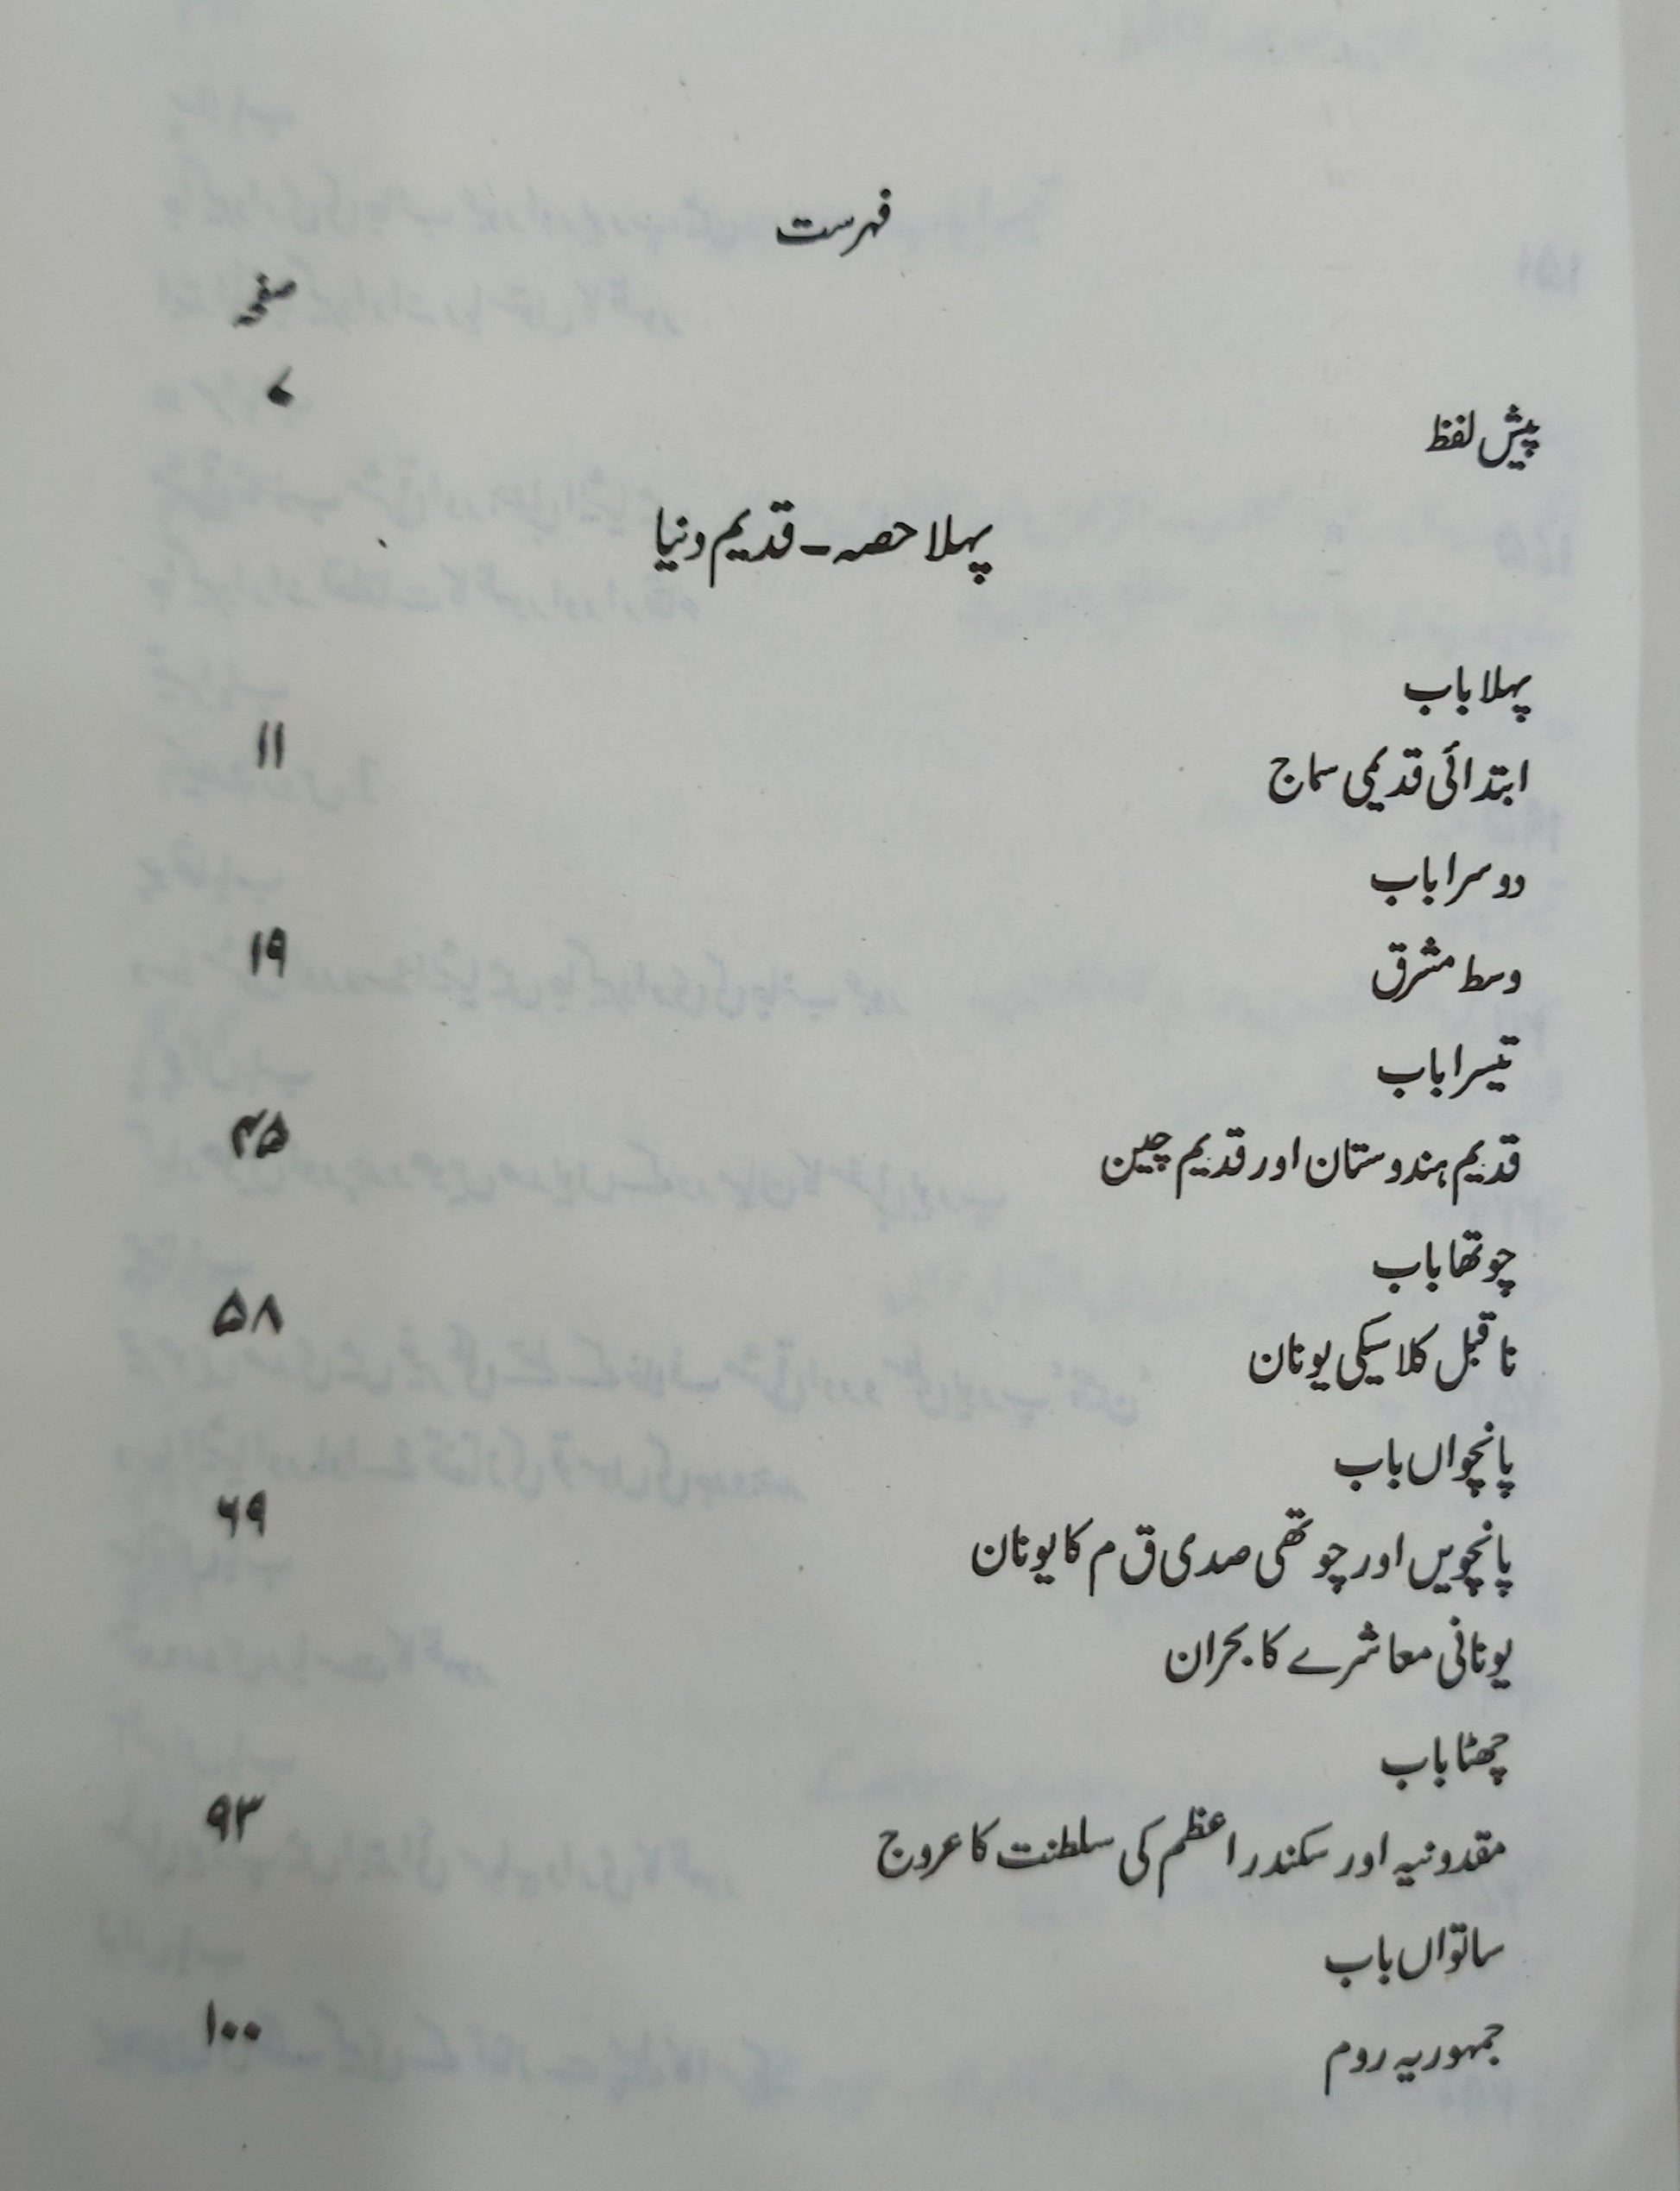 فہرست
صفحہ
پیش لفظ ۷
پہلا حصہ - قدیم دنیا
پہلا باب
ابتدائی قدیمی سماج ۱۱
دوسرا باب
وسط مشرق ۱۹
تیسرا باب
قدیم ہندوستان اور قدیم چین ۴۵
چوتھا باب
ناقبل کلاسیکی یونان ۵۸
پانچواں باب
پانچویں اور چوتھی صدی ق م کا یونان ۶۹
یونانی معاشرے کا بحران
چھٹا باب
مقدونیہ اور سکندر اعظم کی سلطنت کا عروج ۹۳
ساتواں باب
جمہوریہ روم ۱۰۰